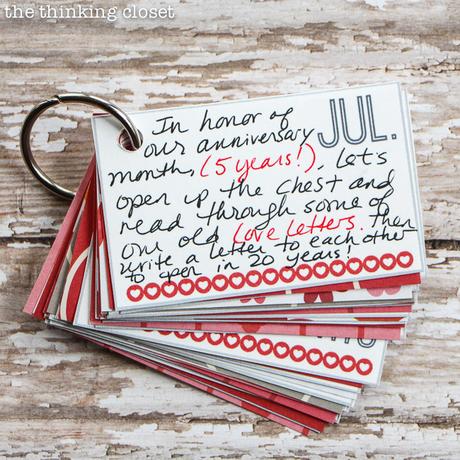 the thinking closet
JUL.
In honor of
our anniversary
month, (5 years!), let's
open up the chest and
read through some of
our old love letters. Then
write a letter to each other
to open in 20 years!